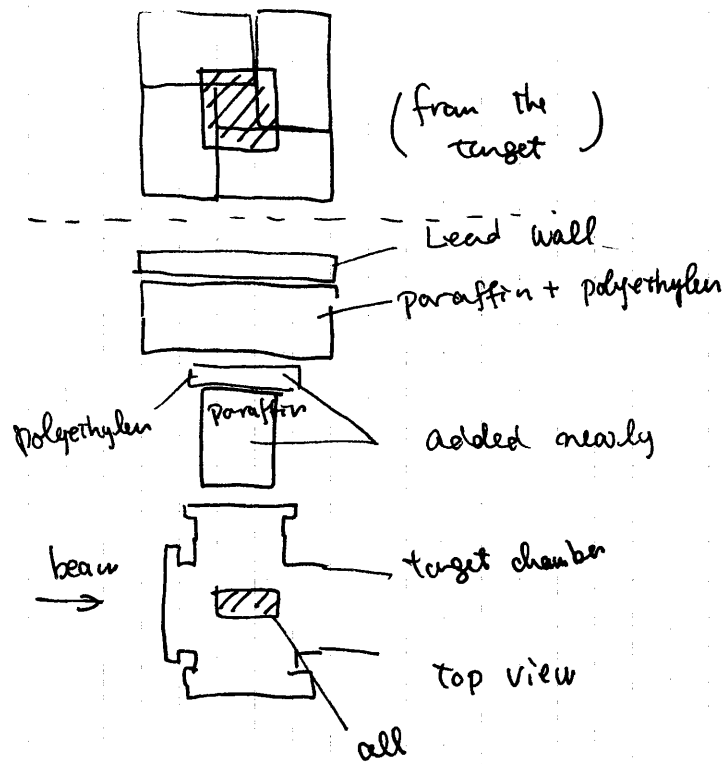 (from the
target)
Lead wall
paraffin + polyethylen
polyethylen
paraffin
added newly
beam
target chamber
top view